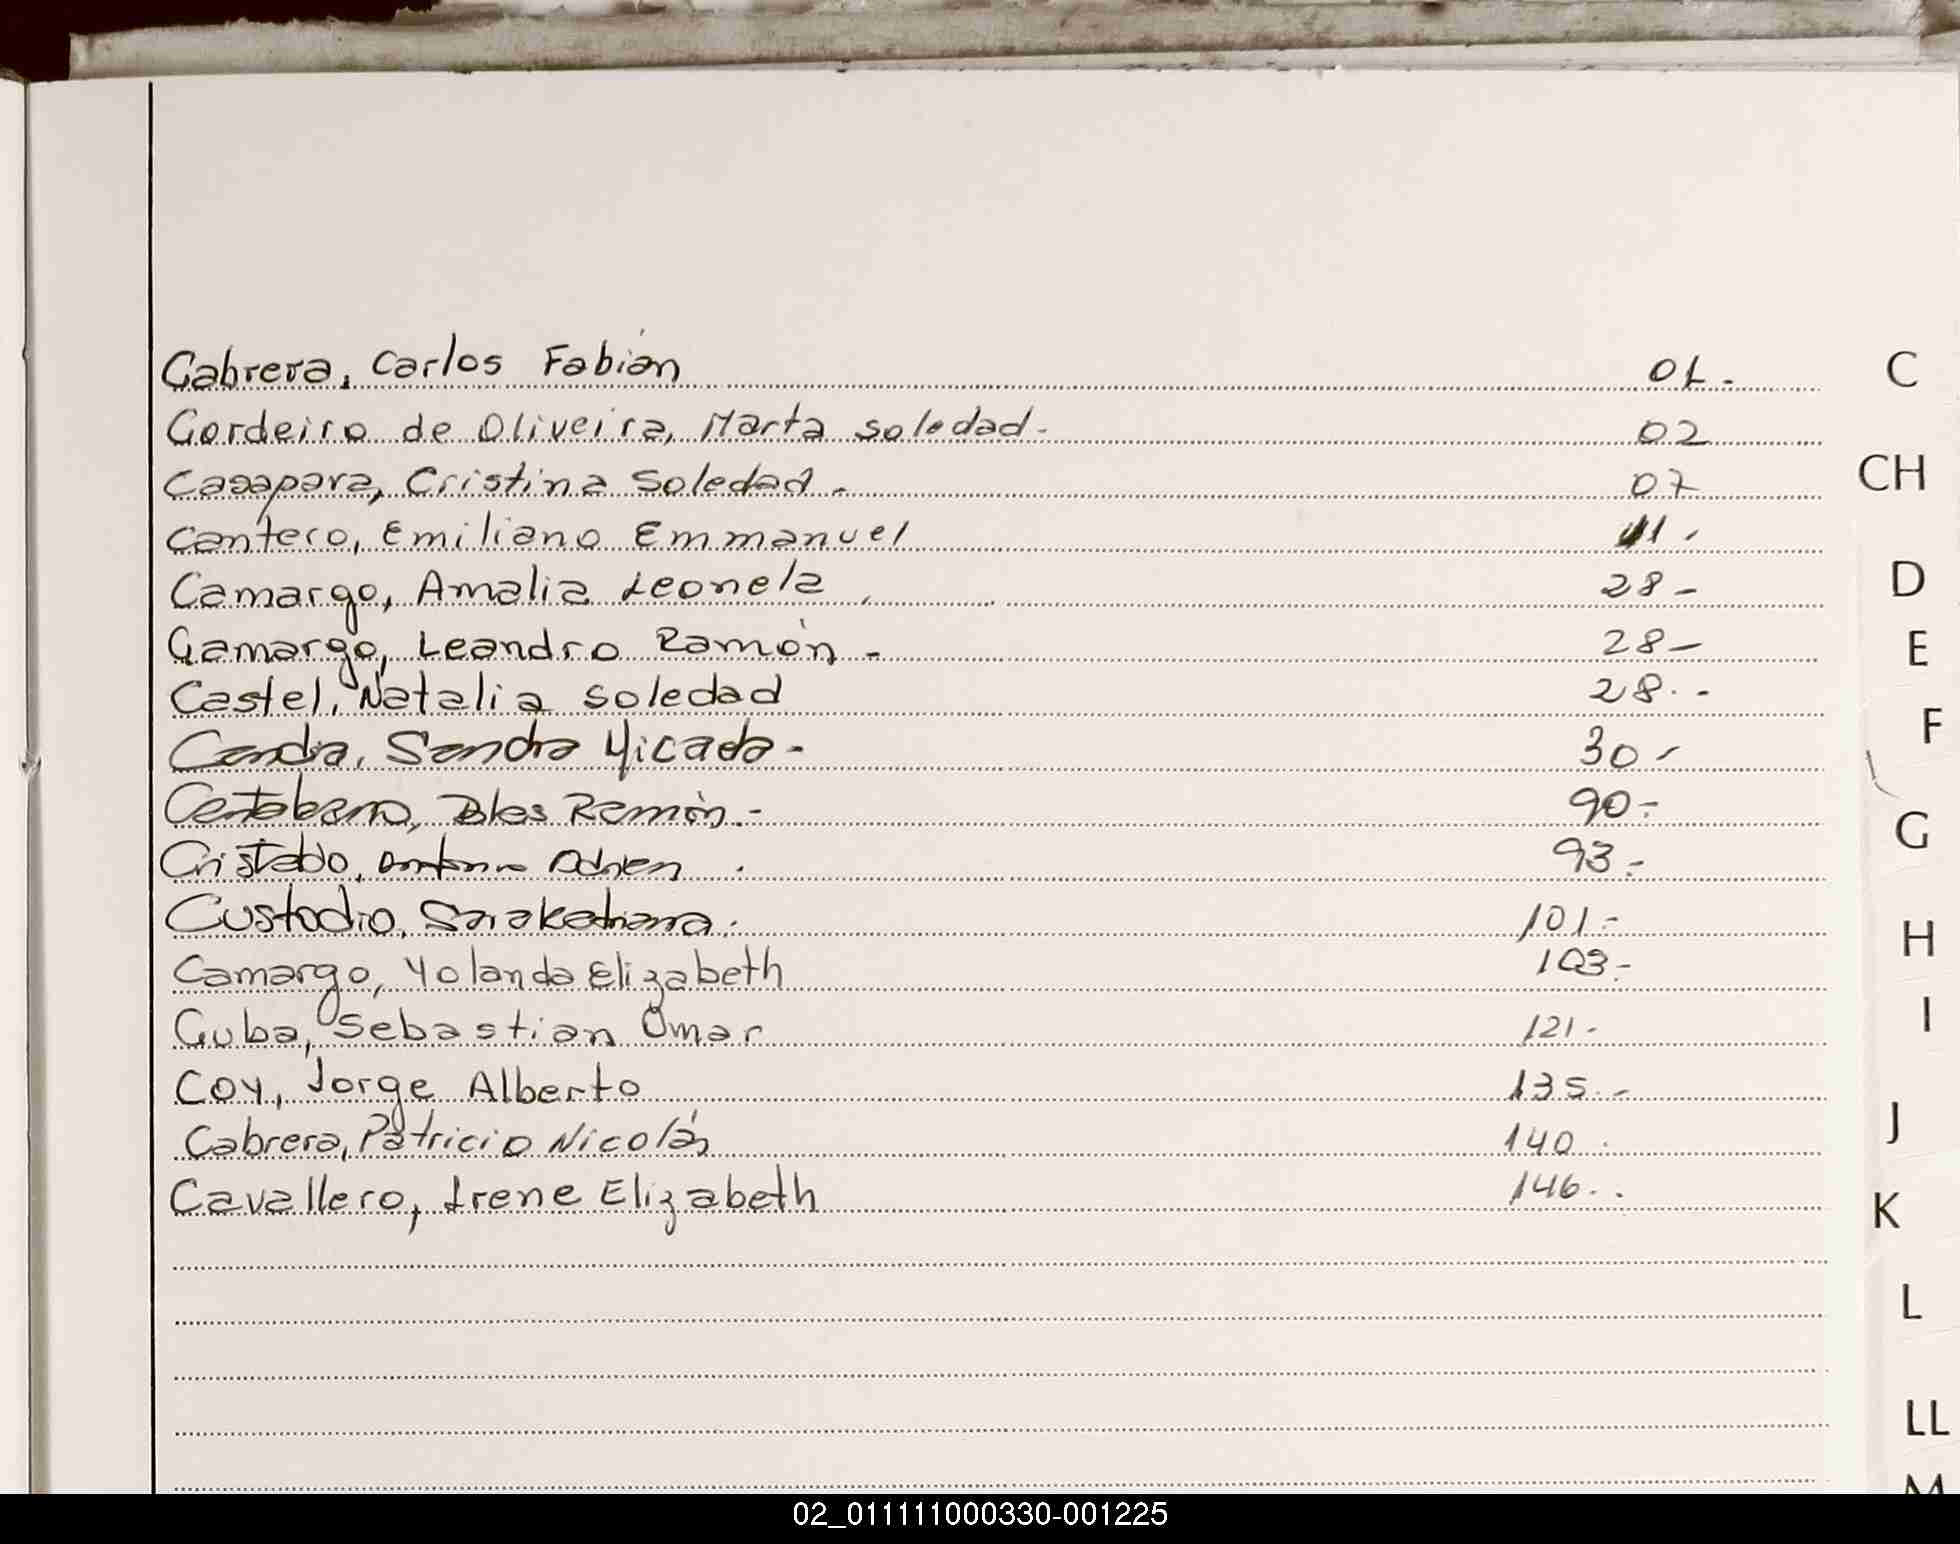 Cabrera, Carlos Fabián 01.-
C
Cordeiro de Oliveira, Marta Soledad.- 02
Casapara, Cristina Soledad.- 07
CH
Cantero, Emiliano Emmanuel 11.
Camargo, Amalia Leonela 28-
D
Camargo, Leandro Ramón - 28-
E
Castel, Natalia Soledad 28.-
F
Candia, Sandra Micaela- 30-
Blas Ramón.- 90.-
G
Adrien 93.-
Custodio, 101.-
H
Camargo, Yolanda Elizabeth 103.-
I
Cuba, Sebastian Omar 121.-
Coy, Jorge Alberto 135.-
J
Cabrera, Patricio Nicolás 140.
Cavallero, Irene Elizabeth 146..
K
L
LL
M
02_011111000330-001225